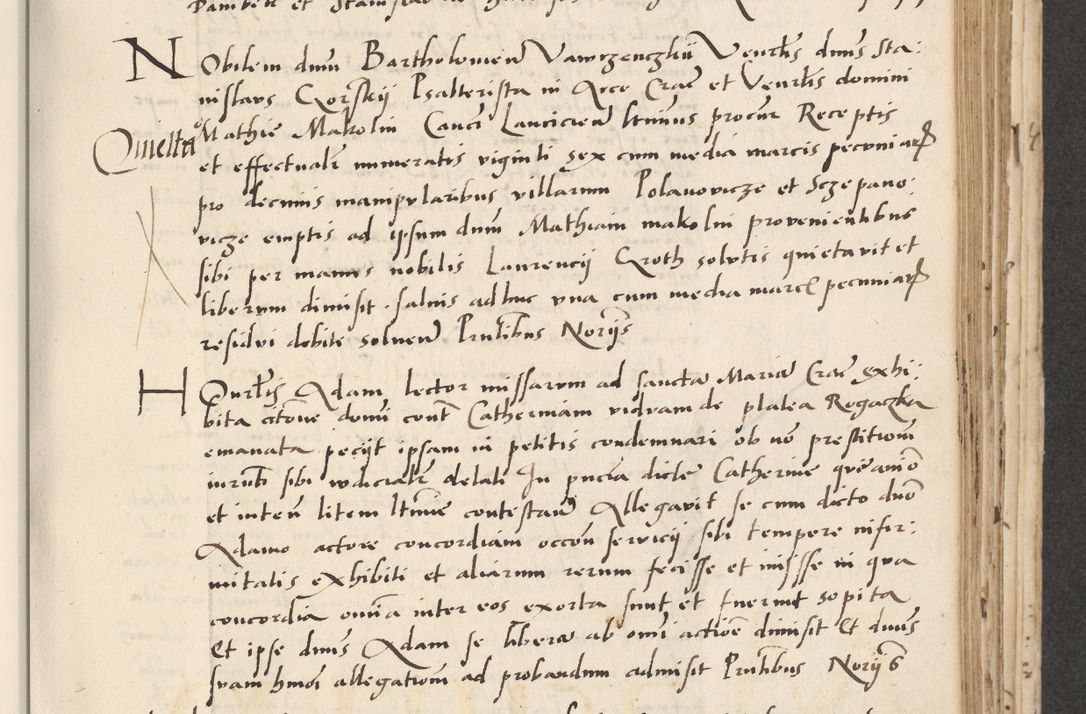 Nobilem dnm Bartholomeu Vawrzenczkii Venrlis dnus Sta:
nislaus Gorskij Psalterista in Arce Crac et Venrlis domini
Mathie Makolin Canci Lancicien ltimus procur Receptis
Quietta
et effectualr numeratis viginti sex cum media marcis pecuniar
pro decimis manipularibus villarum Polanovicze et Sczepano:
vicze emptis ad ipsum dnm Mathiam makolin provenientibus
sibi per manus nobilis Laurencij Groth solutis quietavit et
liberum dimisit. salvis adhuc una cum media marc pecuniar
residui debite solven Prntibus Norijs
Honrlis Adam lector missarum ad sanctam Maria Crac exhi:
bita citone domi cont Catherinam viduam de platea Rogaczka
emanata pecijt ipsam in petitis condemnari ob no prestitiom
iurnti sibi iudicialr delati In pncia dicte Catherine que
et inten litem ltime contestan Allegavit se cum dicto dno
Adamo actore concordiam occon servicij sibi tempore infir:
mitatis exhibiti et aliarum rerum fecisse et inisse in qua
concordia omia inter eos exorta sunt et fuerunt sopita
Et ipse dnus Adam se libera ab omi actioe dimisit Et dnus
suam hmoi allegationi ad probandum admisit Prntibus Norijs